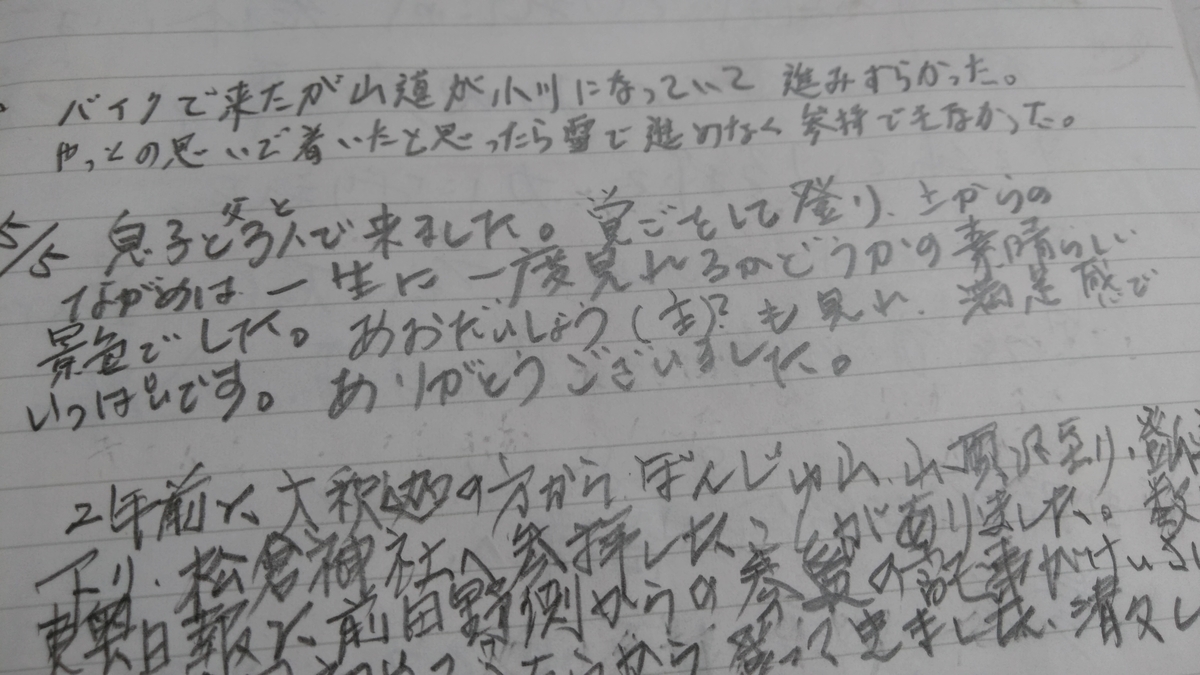 バイクで来たが山道が小川になっていて 進みずらかった。
やっとの思いで着いたと思ったら雪で進めなく 参拝できなかった。
5/5 息子と父と3人で来ました。覚ごをして登り、上からの
ながめは一生に一度見れるかどうかの素晴らしい
景色でした。あおだいしょう(主)?も見れ、満足感で
いっぱいです。ありがとうございました。
2年前に、大釈迦の方から ぼんじゅ山、山頂に至り、登山
下り、松倉神社へ参拝したことがありました。数
東奥日報に、前田野側からの参道の記事がけいさい
から登って来ました。清々し